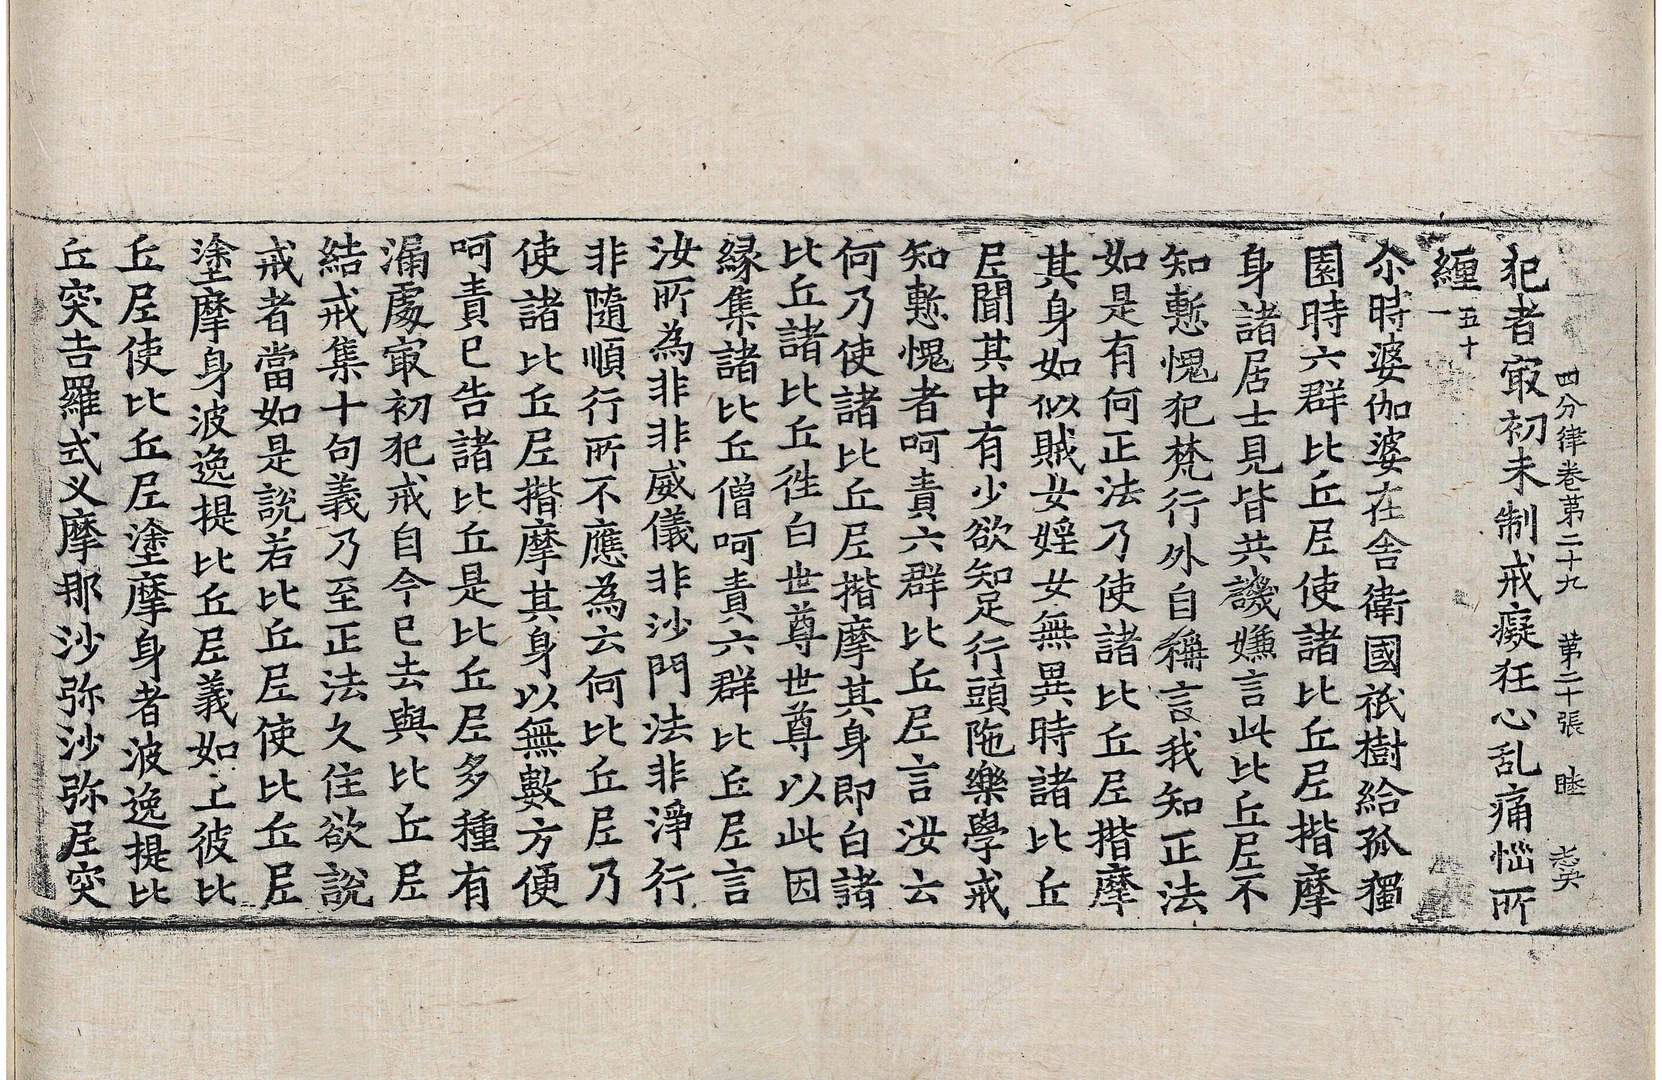 犯者㝡初未制戒癡狂心乱痛惱所
四分律卷苐二十九 苐二十張 睦
纏一百五十
尒時婆伽婆在舍衛國祇樹給孤獨
園時六群比丘尼使諸比丘尼揩摩
身諸居士見皆共譏嫌言此比丘尼不
知慙愧犯梵行外自稱言我知正法
如是有何正法乃使諸比丘尼揩摩
其身如似賊女婬女無異時諸比丘
尼聞其中有少欲知足行頭陁樂學戒
知慙愧者呵責六群比丘尼言汝云
何乃使諸比丘尼揩摩其身即白諸
比丘諸比丘徃白世尊世尊以此因
緣集諸比丘僧呵責六群比丘尼言
汝所為非非威儀非沙門法非淨行
非隨順行所不應為云何比丘尼乃
使諸比丘尼揩摩其身以無數方便
呵責已告諸比丘是比丘尼多種有
漏處㝡初犯戒自今已去與比丘尼
結戒集十句義乃至正法久住欲說
戒者當如是說若比丘尼使比丘尼
塗摩身波逸提比丘尼義如上彼比
丘尼使比丘尼塗摩身者波逸提比
丘突吉羅式义摩那沙弥沙弥尼突